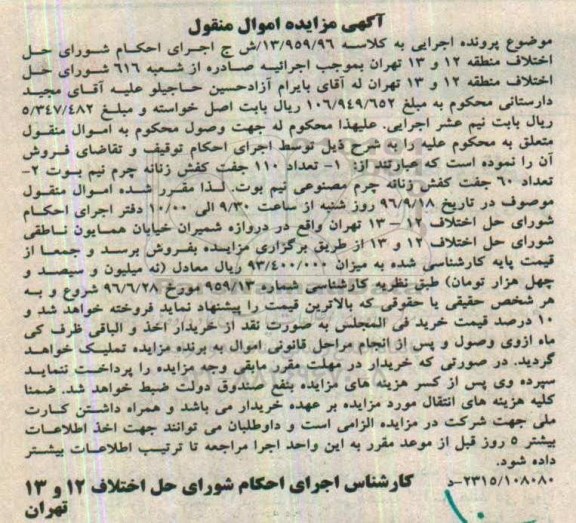 آگهی مزایده اموال منقول
موضوع پرونده اجرایی به کلاسه ۱۳/۹۵۹/۹۶/ش ج اجرای احکام شورای حل
اختلاف منطقه ۱۲ و ۱۳ تهران بموجب اجرائیه صادره از شعبه ۶۱۶ شورای حل
اختلاف منطقه ۱۲ و ۱۳ تهران له آقای بایرام آزادحسین حاجیلو علیه آقای مجید
دارستانی محکوم به مبلغ ۱۰۶/۹۴۹/۶۵۲ ریال بابت اصل خواسته و مبلغ ۵/۳۴۷/۴۸۲
ریال بابت نیم عشر اجرایی. علیهذا محکوم له جهت وصول محکوم به اموال منقول
متعلق به محکوم علیه را به شرح ذیل توسط اجرای احکام توقیف و تقاضای فروش
آن را نموده است که عبارتند از: ۱- تعداد ۱۱۰ جفت کفش زنانه چرم نیم بوت ۲-
تعداد ۶۰ جفت کفش زنانه چرم مصنوعی نیم بوت. لذا مقرر شده اموال منقول
موصوف در تاریخ ۹۶/۹/۱۸ روز شنبه از ساعت ۹/۳۰ الی ۱۰/۰۰ دفتر اجرای احکام
شورای حل اختلاف ۱۲ – ۱۳ تهران واقع در دروازه شمیران خیابان همایون ناطقی
شورای حل اختلاف ۱۲ و ۱۳ از طریق برگزاری مزایده بفروش برسد و جمعا از
قیمت پایه کارشناسی شده به میزان ۹۳/۴۰۰/۰۰۰ ریال معادل (نه میلیون و سیصد و
چهل هزار تومان) طبق نظریه کارشناسی شماره ۹۵۹/۱۳ مورخ ۹۶/۶/۲۸ شروع و به
هر شخص حقیقی یا حقوقی که بالاترین قیمت را پیشنهاد نماید فروخته خواهد شد و
۱۰ درصد قیمت خرید فی المجلس به صورت نقد از خریدار اخذ و الباقی ظرف کی
ماه ازوی وصول و پس از انجام مراحل قانونی اموال به برنده مزایده تملیک خواهد
گردید. در صورتی که خریدار در مهلت مقرر مابقی وجه مزایده را پرداخت ننماید
سپرده وی پس از کسر هزینه های مزایده بنفع صندوق دولت ضبط خواهد شد. ضمنا
کلیه هزینه های انتقال مورد مزایده بر عهده خریدار می باشد و همراه داشتن کارت
ملی جهت شرکت در مزایده الزامی است و داوطلبان می توانند جهت اخذ اطلاعات
بیشتر ۵ روز قبل از موعد مقرر به این واحد اجرا مراجعه تا ترتیب اطلاعات بیشتر
داده شود.
۲۳۱۵/۱۰۸۰۸۰-د کارشناس اجرای احکام شورای حل اختلاف ۱۲ و ۱۳
تهران